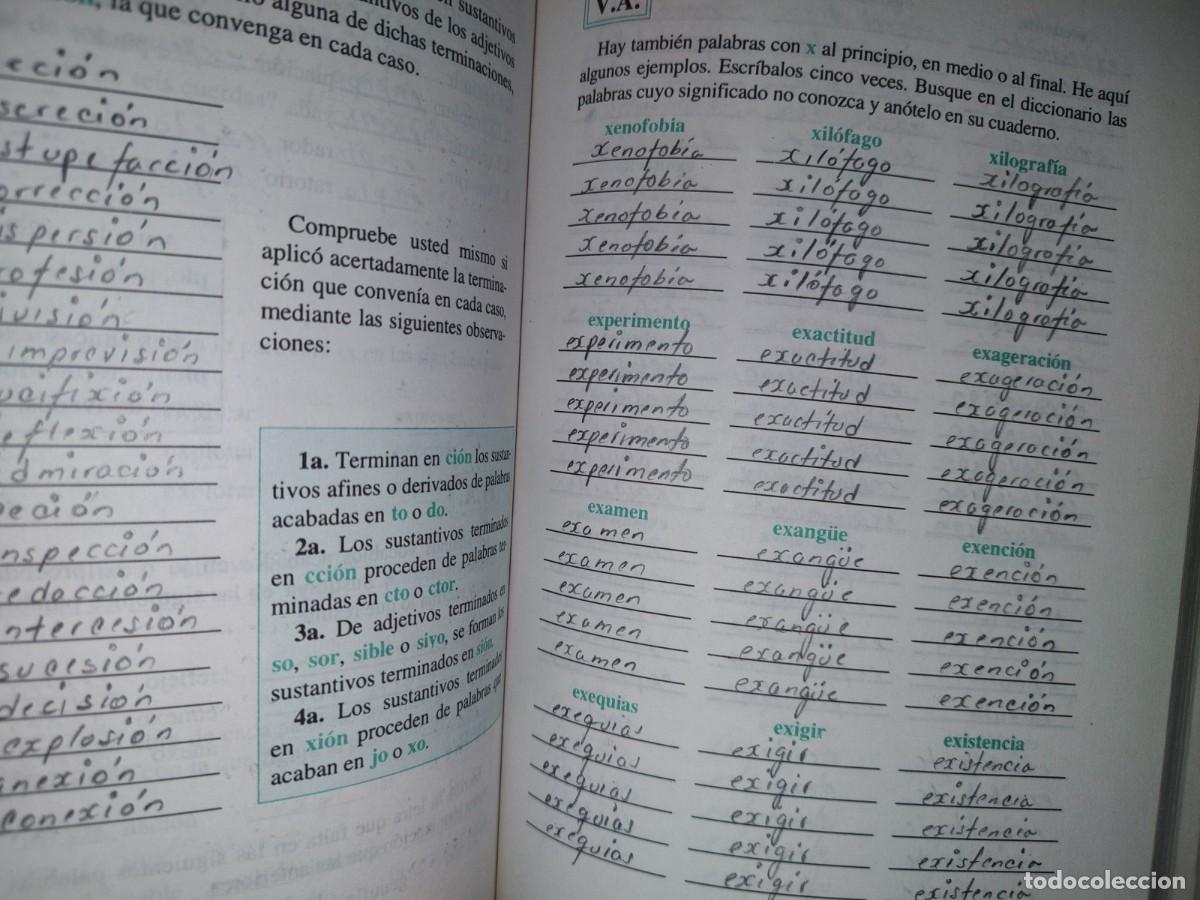 sustantivos
sustantivos de los adjetivos
alguna de dichas terminaciones,
la que convenga en cada caso.
cción
screción
stupefacción
orrección
spersión
ofesión
visión
imprevisión
cifixión
eflexión
dmiración
ección
nspección
edacción
ntercesión
sucesión
decisión
explosión
anexión
conexión
Compruebe usted mismo si
aplicó acertadamente la termina-
ción que convenía en cada caso,
mediante las siguientes observa-
ciones:
1a. Terminan en ción los sustan-
tivos afines o derivados de palabras
acabadas en to o do.
2a. Los sustantivos terminados
en cción proceden de palabras ter-
minadas en cto o ctor.
3a. De adjetivos terminados en
so, sor, sible o sivo, se forman los
sustantivos terminados en sión.
4a. Los sustantivos terminados
en xión proceden de palabras que
acaban en jo o xo.
V.A.
Hay también palabras con x al principio, en medio o al final. He aquí
algunos ejemplos. Escríbalos cinco veces. Busque en el diccionario las
palabras cuyo significado no conozca y anótelo en su cuaderno.
xenofobia xilófago xilografía
xenofobia xilófago xilografía
xenofobia xilófago xilografía
xenofobia xilófago xilografía
xenofobia xilófago xilografía
xenofobia xilófago xilografía
experimento exactitud exageración
experimento exactitud exageración
experimento exactitud exageración
experimento exactitud exageración
experimento exactitud exageración
experimento exactitud exageración
examen exangüe exención
examen exangüe exención
examen exangüe exención
examen exangüe exención
examen exangüe exención
examen exangüe exención
exequias exigir existencia
exequias exigir existencia
exequias exigir existencia
exequias exigir existencia
exequias exigir existencia
exequias exigir existencia
todocoleccion